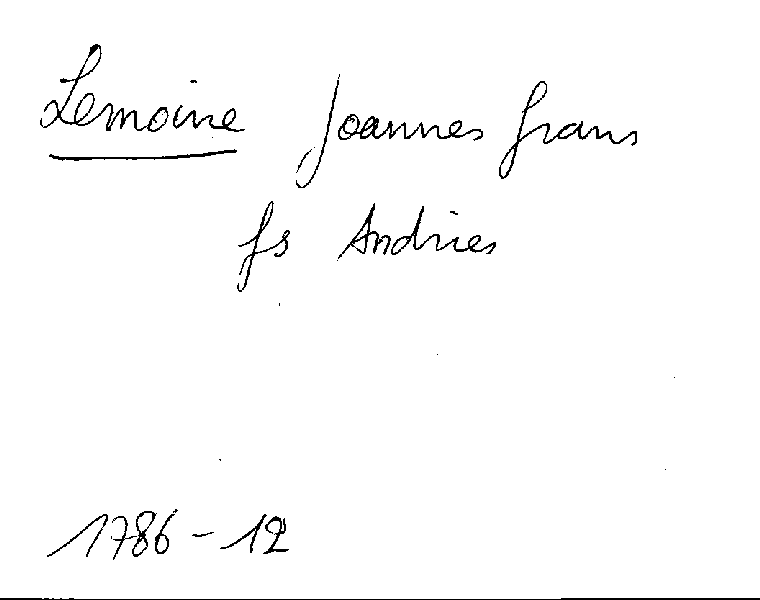 Lemoine Joannes frans
fs Andries
1786-12